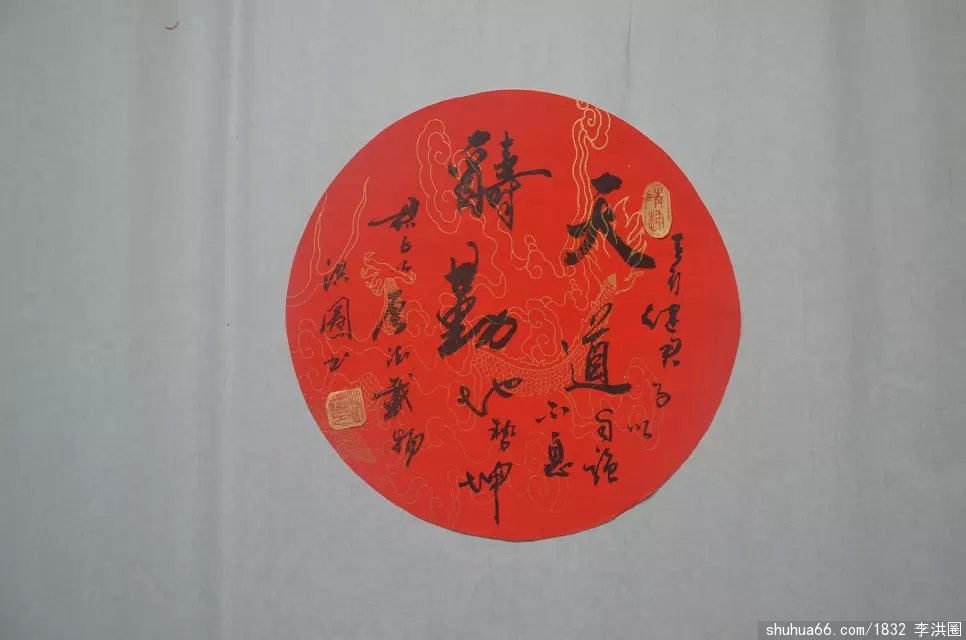 天道
醻勤
天行健君子以
自強
不息
地勢坤
君子以厚德載物
洪圈书
shuhua66.com/1832 李洪圈